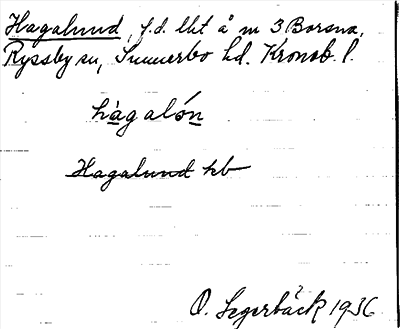 Hagalund, f.d. lht å m 3 Borsna,
Ryssby sn, Sunnerbo hd. Kronob. l.
hàgalón
Hagalund kb
O. Segerbäck 1936